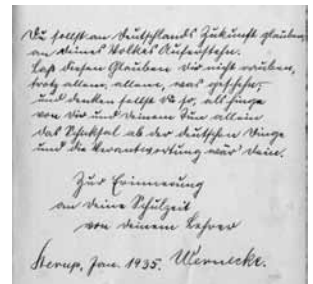 Du sollst an Deutschlands Zukunft glauben,
an deines Volkes Auferstehn.
Laß diesen Glauben dir nicht rauben,
trotz allem, allem, was geschehn,
und handeln sollst du so, als hinge
von dir und deinem Tun allein
das Schicksal ab der deutschen Dinge
und die Verantwortung wär' dein.
Zur Erinnerung
an deine Schulzeit
von deinem Lehrer
Sterup, Jan. 1935. Wernecke.